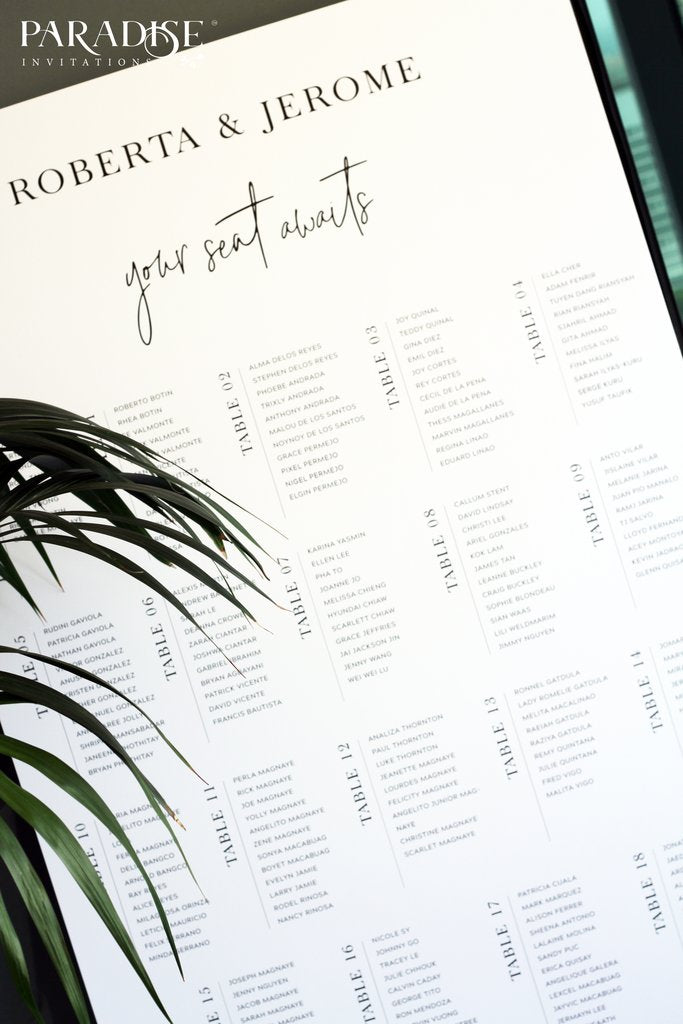 PARADISE
INVITATIONS
ROBERTA & JEROME
your seat awaits
ROBERTO BOTIN
RHEA BOTIN
VALMONTE
VALMONTE
TABLE 02
ALMA DELOS REYES
STEPHEN DELOS REYES
PHOEBE ANDRADA
TRIXLY ANDRADA
ANTHONY ANDRADA
MALOU DE LOS SANTOS
NOYNOY DE LOS SANTOS
GRACE PERMEJO
PIXEL PERMEJO
NIGEL PERMEJO
ELGIN PERMEJO
TABLE 03
JOY QUINAL
TEDDY QUINAL
GINA DIEZ
EMIL DIEZ
JOY CORTES
REY CORTES
CECIL DE LA PENA
AUDIE DE LA PENA
THESS MAGALLANES
MARVIN MAGALLANES
REGINA LINAO
EDUARD LINAO
TABLE 04
ELLA CHER
ADAM FENRIR
TUYEN DANG RIANSYAH
RIAN RIANSYAH
SJAHRIL AHMAD
GITA AHMAD
MELISSA ILYAS
FINA HALIM
SARAH ILYAS-KURU
SERGE KURU
YUSUF TAUFIK
TABLE 05
RUDINI GAVIOLA
PATRICIA GAVIOLA
NATHAN GAVIOLA
GONZALEZ
GONZALEZ
GONZALEZ
GONZALEZ
GONZALEZ
JOLLY
MANSABADAR
PHOTHITAY
BRYAN PHOTHITAY
TABLE 06
ALEXIS
ANDREW
SARAH LE
DEANNA CROWE
ZARAH CIANTAR
JOSHUA CIANTAR
GABRIEL IBRAHIM
BRYAN AGBAYANI
PATRICK VICENTE
DAVID VICENTE
FRANCIS BAUTISTA
TABLE 07
KARINA YASMIN
ELLEN LEE
PHA TO
JOANNE JO
MELISSA CHIENG
HYUNDAI CHIAW
SCARLETT CHIAW
GRACE JEFFRIES
JAI JACKSON JIN
JENNY WANG
WEI WEI LU
TABLE 08
CALLUM STENT
DAVID LINDSAY
CHRISTI LEE
ARIEL GONZALES
KOK LAM
JAMES TAN
LEANNE BUCKLEY
CRAIG BUCKLEY
SOPHIE BLONDEAU
SIAN WAAS
LILI WELDMARIM
JIMMY NGUYEN
TABLE 09
ANTO VILAR
JISLAINE VILAR
MELANIE JARINA
JUAN PIO MANALO
RAMJ JARINA
TJ SALVO
LLOYD
ACEY
KEVIN
GLENN
TABLE 10
BANGCO
ARNOLD BANGCO
RAY REYES
ALICE REYES
MILAGROSA ORINZA
LETICIA MAURICIO
FELIX SERRANO
MINDA SERRANO
TABLE 11
PERLA MAGNAYE
RICK MAGNAYE
JOE MAGNAYE
YOLLY MAGNAYE
ANGELITO MAGNAYE
ZENE MAGNAYE
SONYA MACABUAG
BOYET MACABUAG
EVELYN JAMIE
LARRY JAMIE
RODEL RINOSA
NANCY RINOSA
TABLE 12
ANALIZA THORNTON
PAUL THORNTON
LUKE THORNTON
JEANETTE MAGNAYE
LOURDES MAGNAYE
FELICITY MAGNAYE
ANGELITO JUNIOR MAG-
NAYE
CHRISTINE MAGNAYE
SCARLET MAGNAYE
TABLE 13
RONNEL GATDULA
LADY ROMELIE GATDULA
MELITA MACALINAO
RAEIAH GATDULA
RAZIYA GATDULA
REMY QUINTANA
JULIE QUINTANA
FRED VIGO
MALITA VIGO
TABLE 14
TABLE 15
JOSEPH MAGNAYE
JENNY NGUYEN
JACOB MAGNAYE
SARAH MAGNAYE
TABLE 16
NICOLE SY
JOHNNY GO
TRACEY LE
JULIE CHHOUK
CALVIN CADAY
GEORGE TITO
RON MENDOZA
VUONG
TABLE 17
PATRICIA CUALA
MARK MARQUEZ
ALISON FERRER
SHEENA ANTONIO
LALAINE MOLINA
SANDY PUC
ERICA QUISAY
ANGELIQUE GALERA
LEXCEL MACABUAG
JAYVIC MACABUAG
JERMAYN LEE
TABLE 18